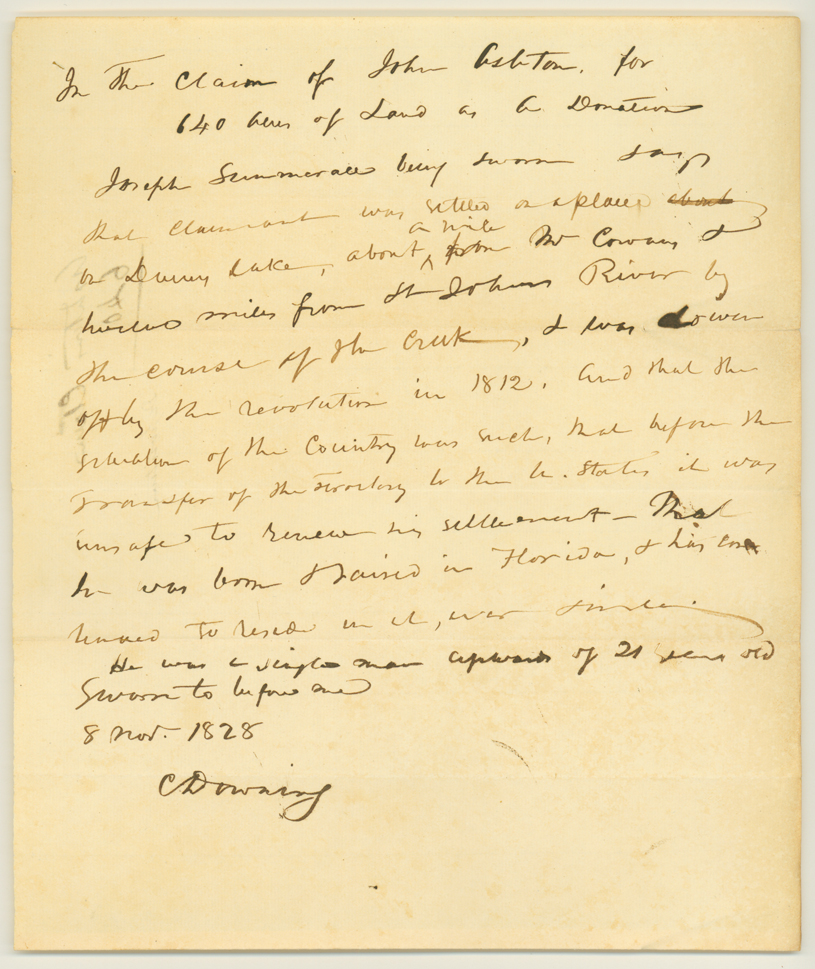 In the Claim of John Ashton. for
640 Acres of Land as a Donation
Joseph Summerall being sworn says
that claimant was settled on a place about
on Dunns Lake, about a mile from McCowans &
twelve miles from St Johns River by
the course of the Creek, & was driven
off by the revolution in 1812. And that the
situation of the Country was such, that before the
Transfer of the Territory to the U. States it was
unsafe to renew his settlement - That
he was born & raised in Florida, & has con
tinued to reside in it, ever since.
He was a single man upwards of 21 years old
Sworn to before me
8 Nov. 1828
C Downing